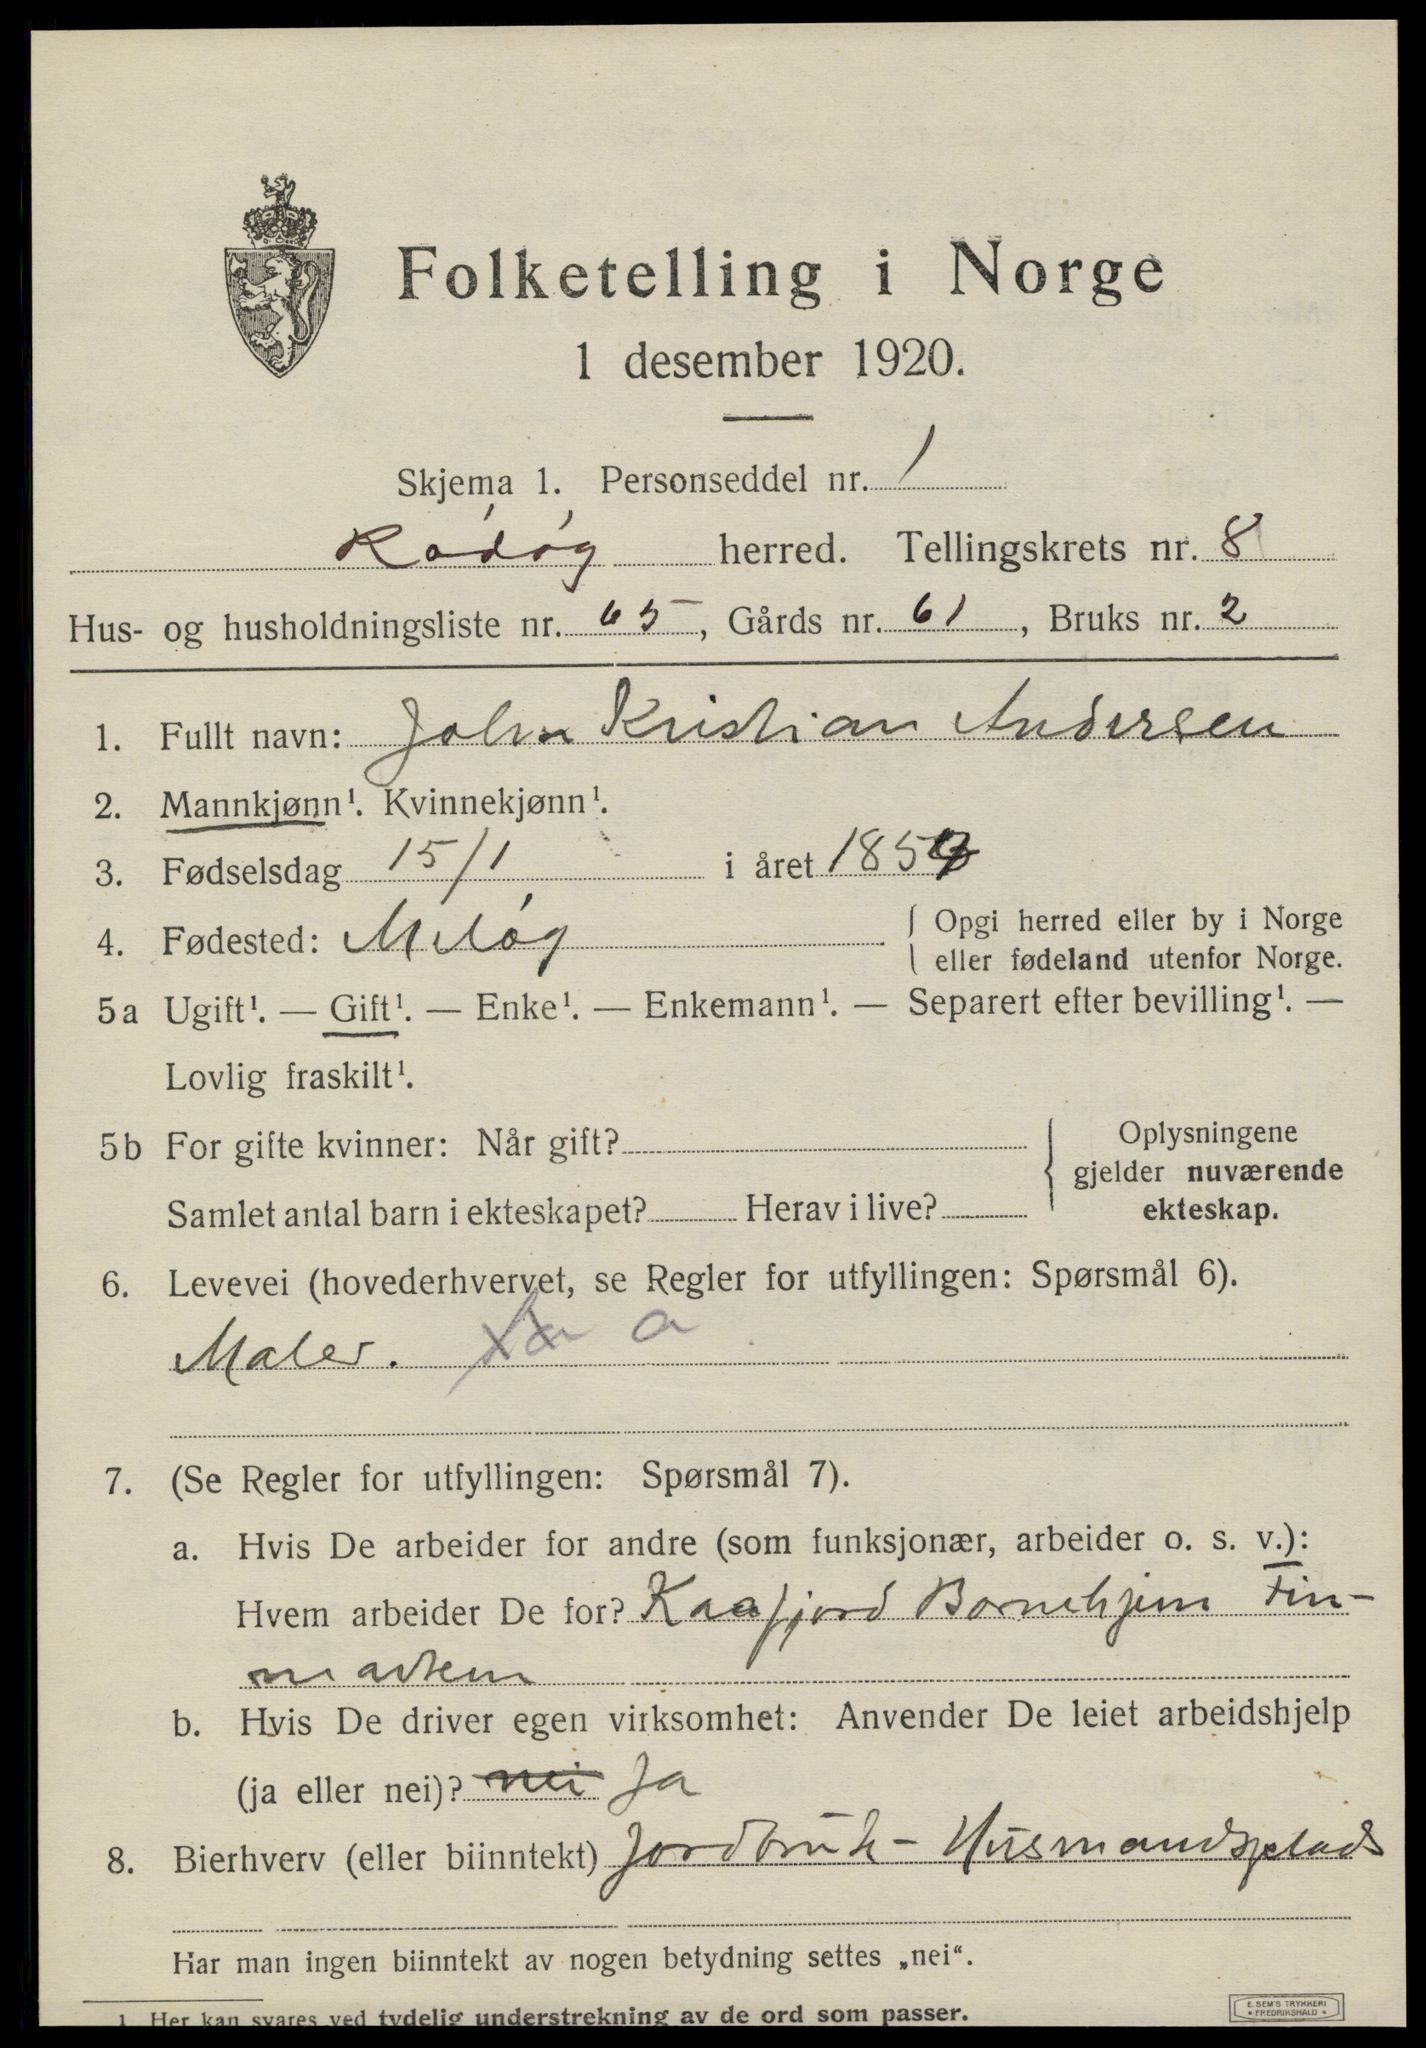 Folketelling i Norge
1 desember 1920.
Skjema 1. Personseddel nr. 1
Rødøy herred. Tellingskrets nr. 8
Hus- og husholdningsliste nr. 65, Gårds nr. 61, Bruks nr. 2
1. Fullt navn: John Kristian Andersen
2. Mannkjønn¹. Kvinnekjønn¹.
3. Fødselsdag 15/1 i året 1859
4. Fødested: Meløy { Opgi herred eller by i Norge
eller fødeland utenfor Norge.
5a Ugift¹. — Gift¹. — Enke¹. — Enkemann¹. — Separert efter bevilling¹. —
Lovlig fraskilt¹.
5b For gifte kvinner: Når gift? { Oplysningene
gjelder nuværende
Samlet antal barn i ekteskapet? Herav i live? ekteskap.
6. Levevei (hovederhvervet, se Regler for utfyllingen: Spørsmål 6).
Maler. a
7. (Se Regler for utfyllingen: Spørsmål 7).
a. Hvis De arbeider for andre (som funksjonær, arbeider o. s. v.):
Hvem arbeider De for? Kaafjord Barnehjem Fin-
marken
b. Hvis De driver egen virksomhet: Anvender De leiet arbeidshjelp
(ja eller nei)? nei Ja
8. Bierhverv (eller biinntekt) Jordbruk - Husmandsplads
Har man ingen biinntekt av nogen betydning settes „nei“.
1 Her kan svares ved tydelig understrekning av de ord som passer.
E. SEM'S TRYKKERI
• FREDRIKSHALD •